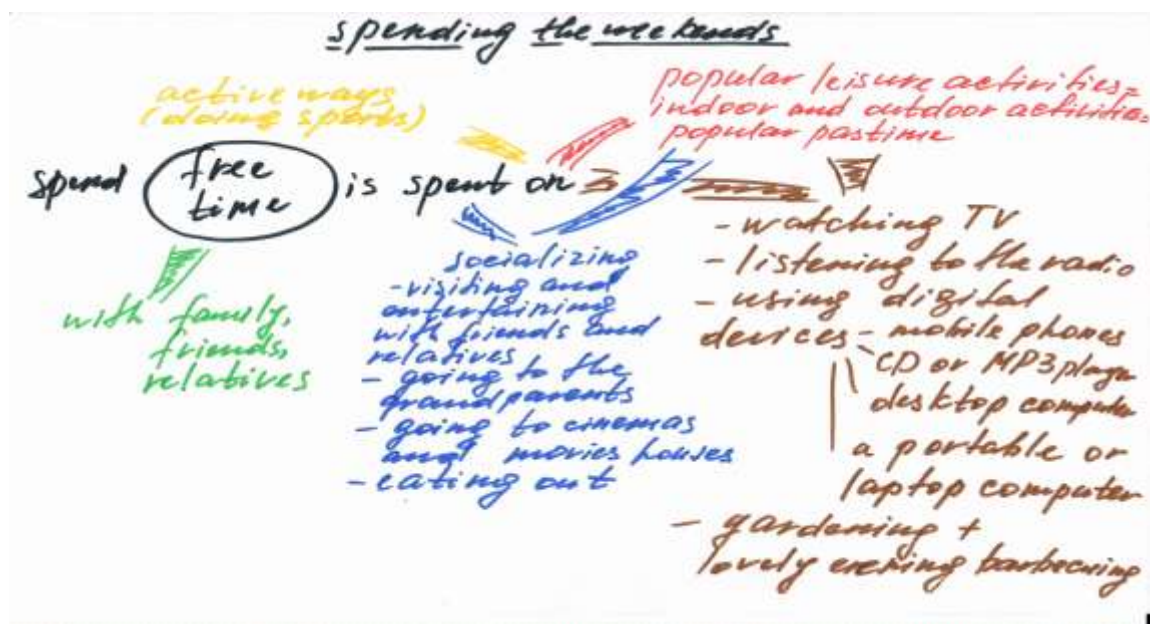 spending the weekends
active ways
(doing sports)
popular leisure activities=
indoor and outdoor activities=
popular pastime
spend free time is spent on
with family,
friends,
relatives
socializing
- visiting and
entertaining
with friends and
relatives
- going to the
grandparents
- going to cinemas
and movies houses
- eating out
- watching TV
- listening to the radio
- using digital
devices - mobile phones
CD or MP3 player
desktop computer
a portable or
laptop computer
- gardening +
lovely evening barbecuing